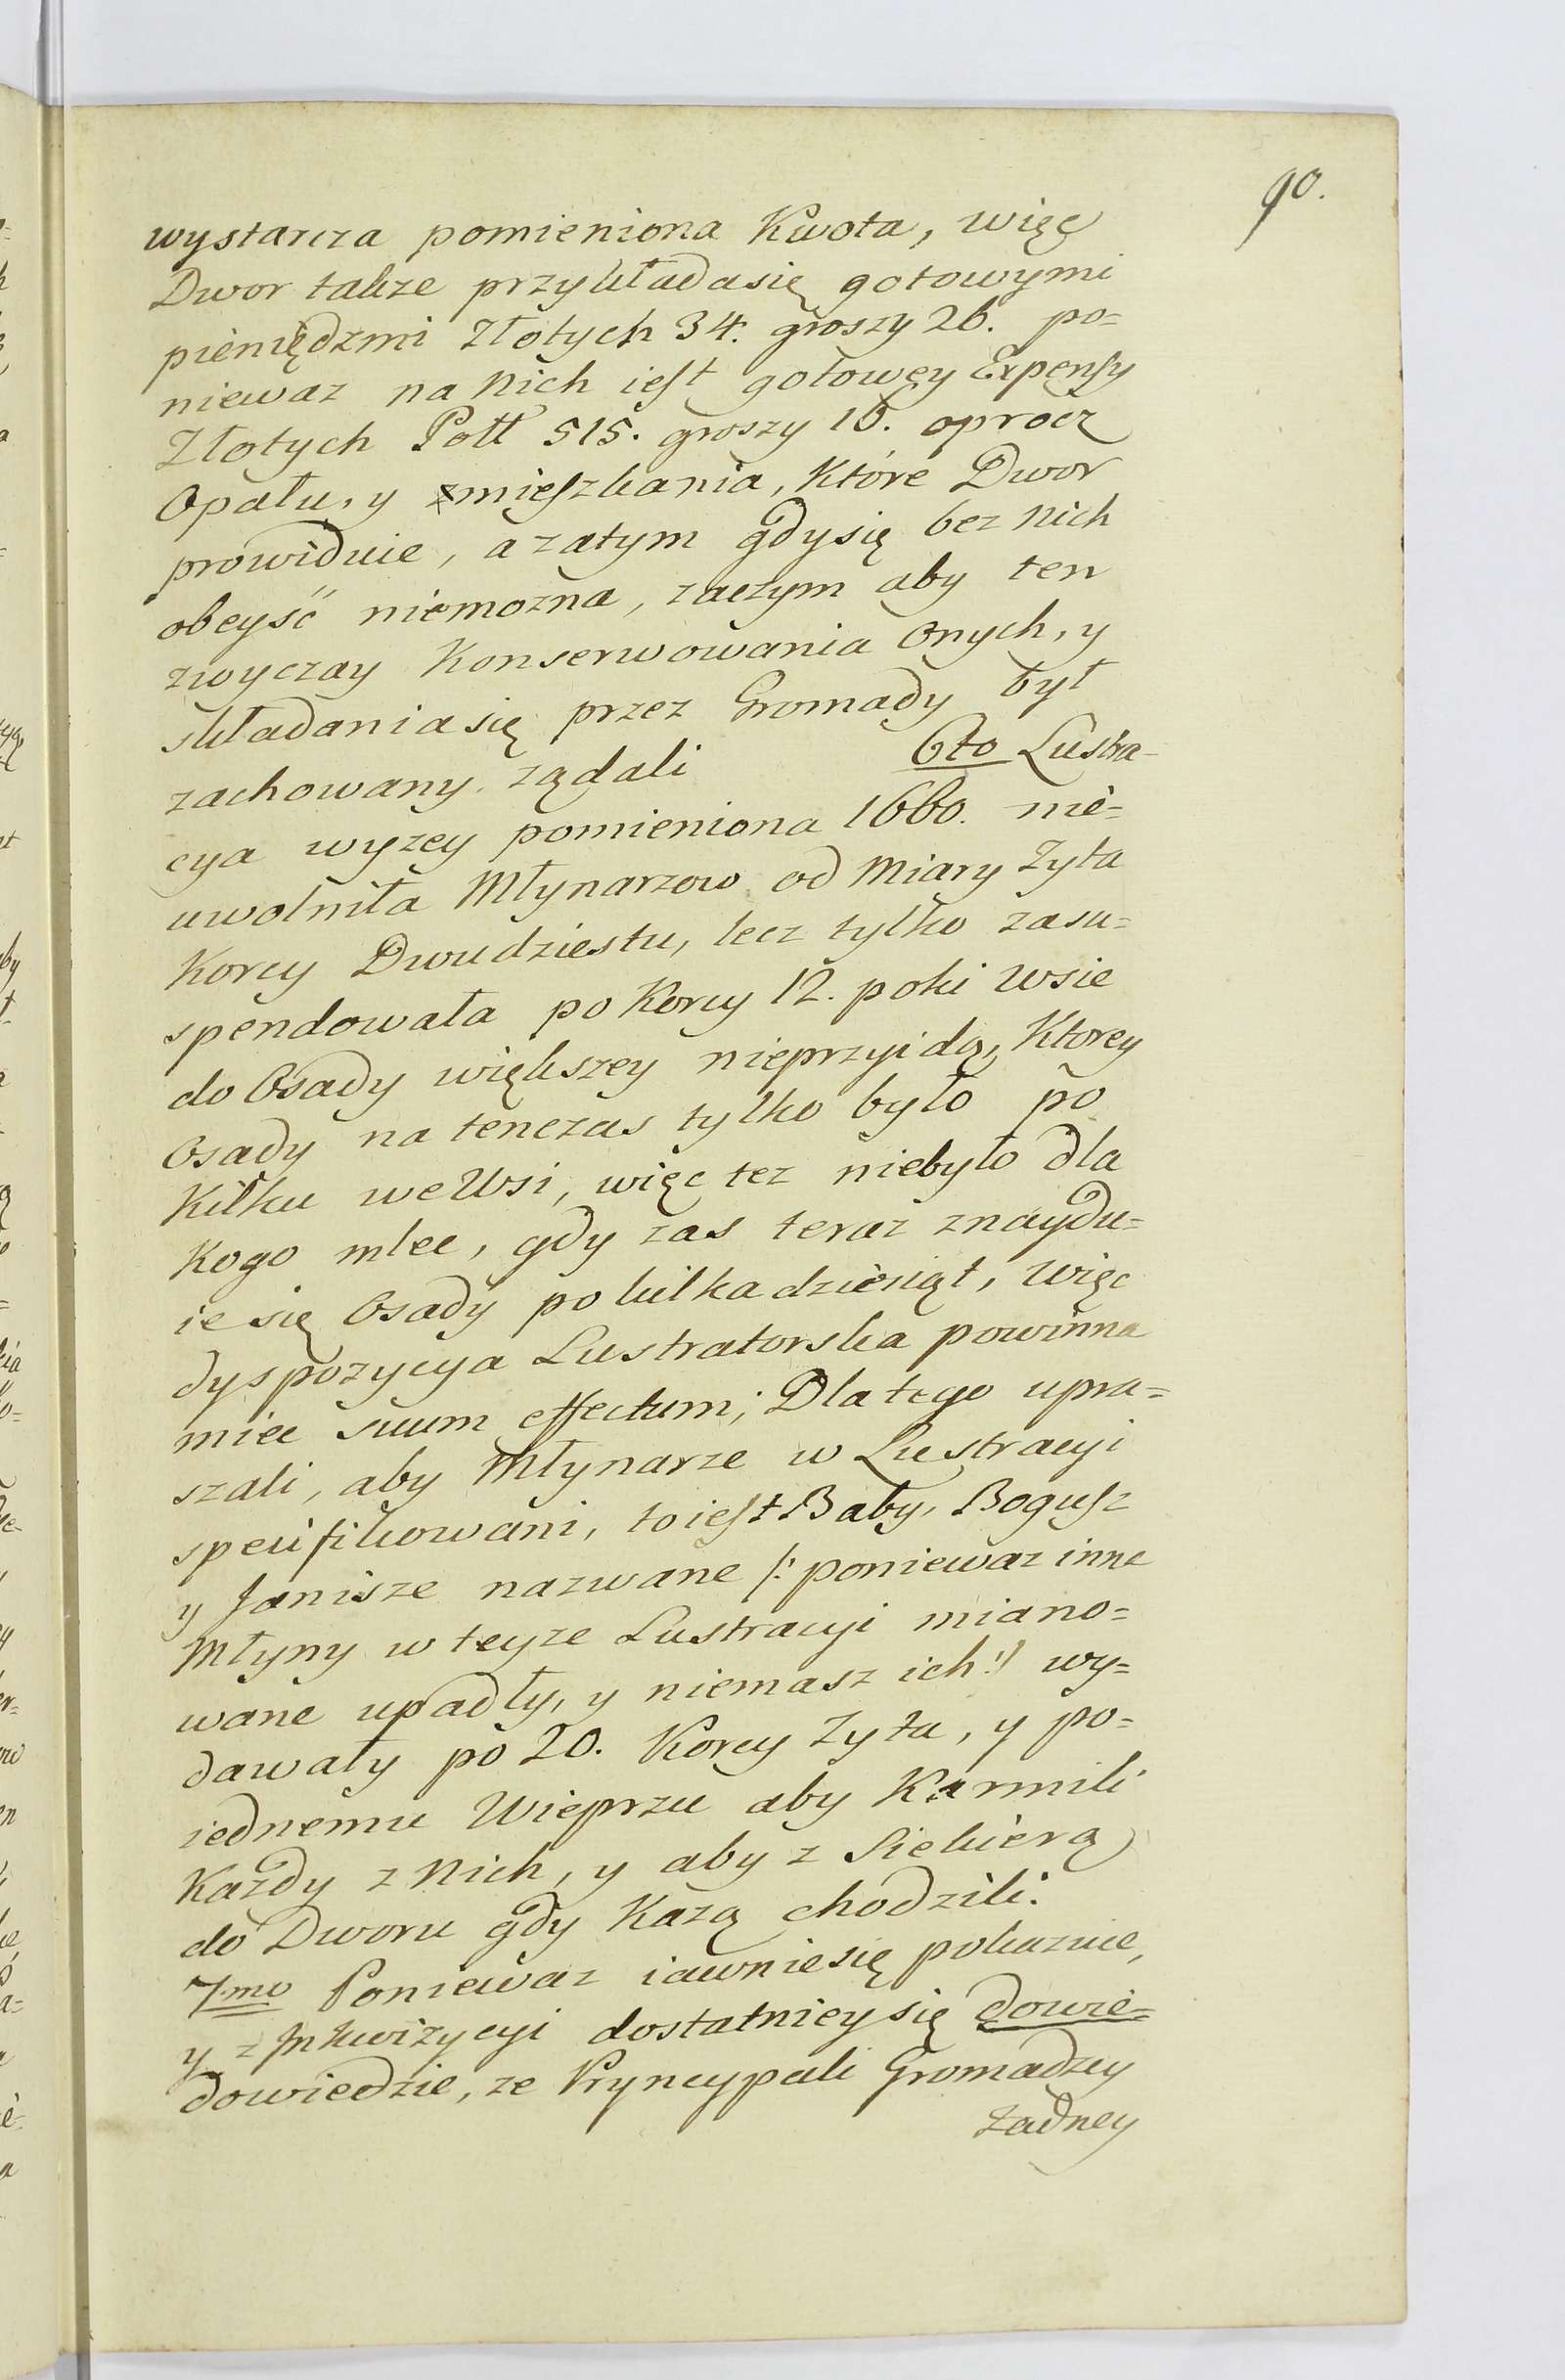 90.
wystarcza pomieniona Kwota, więc
Dwor takze przykładasię gotowymi
pieniędzmi Złotych 34. groszy 26. po=
niewaz na Nich iest gotowey Expensy
Złotych Poll 515. groszy 16. oprocz
Opału, y mieszkania, Które Dwor
prowiduie, a zatym gdysię bez nich
obeyść niemozna, zaczym aby ten
zwyczay Konserwowania Onych, y
składaniasię przez Gromady był
zachowany ządali 6to Lustra-
cya wyzey pomieniona 1660. nie=
uwolniła Młynarzow od Miary Zyta
Korcy Dwudziestu, lecz tylko zasu=
spendowała po Korcy 12. poki Wsie
do Osady większey nieprzyidą, Ktorey
Osady na tenczas tylko było po
Kilku we Wsi, więc tez niebyło dla
Kogo mlec, gdy zas teraz znaydu=
ie się Osady po kilkadziesiąt, więc
dyspozycya Lustratorska powinna
miec suum effectum; Dla tego upra=
szali, aby Młynarze w Lustracyi
specifikowani, to iest Baby, Bogusz
y Janisze nazwane /: poniewaz inne
Młyny w teyze Lustracyi miano=
wane upadły, y niemasz ich :/ wy=
dawały po 20. Korcy Zyta, y po=
iednemu Wieprzu aby Karmili
Kazdy z Nich, y aby z Siekierą
do Dworu gdy Kazą chodzili.
7mo Poniewaz iawnie się pokazuie,
y z Inkwizycyi dostatniey się dowie=
dowiedzie, ze Pryncypali Gromadzcy
Zadney